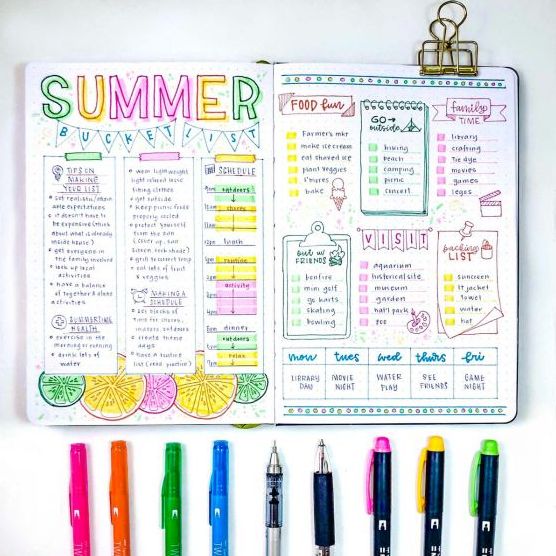 SUMMER
BUCKET LIST
TIPS ON
MAKING
YOUR LIST
set realistic/attain
able expectations
it doesn't have to
be expensive (think
about what is already
inside house)
get everyone in
the family involved
look up local
activities
have a balance
of together & alone
activities
SUMMERTIME
HEALTH
exercise in the
morning or evening
drink lots of
water
wear lightweight
light colored loose
fitting clothes
get outside
keep picnic foods
properly cooled
protect yourself
from the sun
(cover up, sun
screen, look shade)
eat lots of fruit
& veggies
MAKING A
SCHEDULE
set blocks of
time for chores,
indoors, outdoors
create theme
days
have a routine
list
SCHEDULE
outdoors
chores
12pm lunch
routine
activity
dinner
outdoors
relax
FOOD fun
Farmer's mkt
make ice cream
eat shaved ice
plant veggies
s'mores
bake
GO→
outside
hiking
beach
camping
picnic
concert
family
TIME
library
crafting
tie dye
movies
games
legos
out w/
FRIENDS
bonfire
mini golf
go karts
skating
bowling
VISIT
aquarium
historical site
museum
garden
nat'l park
zoo
packing
LIST
sunscreen
lt jacket
towel
water
hat
mon tues wed thurs fri
LIBRARY MOVIE WATER SEE GAME
DAY NIGHT PLAY FRIENDS NIGHT